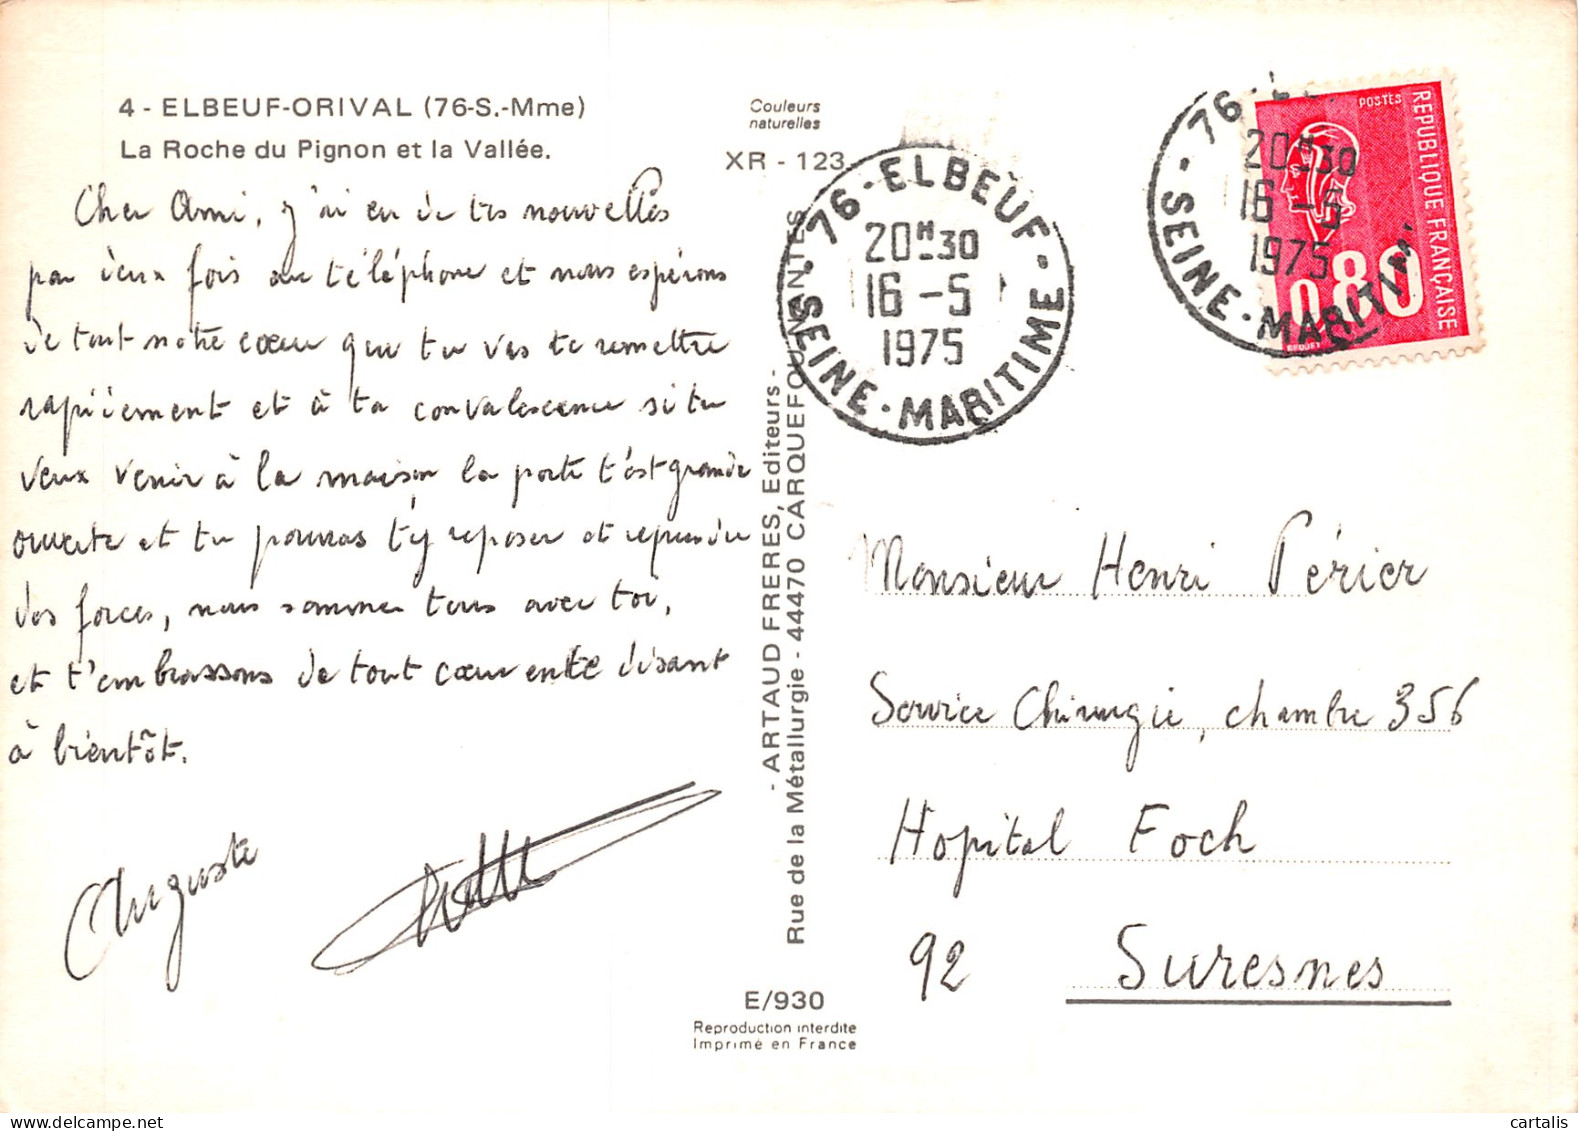 4 - ELBEUF-ORIVAL (76-S.-Mme)
La Roche du Pignon et la Vallée.
Couleurs
naturelles
XR - 123
Cher Ami, j'ai eu de tes nouvelles
par deux fois au téléphone et nous espérons
de tout notre cœur que tu vas te remettre
rapidement et à ta convalescence si tu
veux venir à la maison la porte t'est grande
ouverte et tu pourras t'y reposer et reprendre
des forces, nous sommes tous avec toi,
et t'embrassons de tout cœur en te disant
à bientôt.
Auguste
- ARTAUD FRERES, Editeurs -
Rue de la Métallurgie - 44470 CARQUEFOU NANTES
E/930
Reproduction interdite
Imprimé en France
76 - ELBEUF -
20H30
16 - 5
1975
SEINE - MARITIME
76 - EL
20H30
16 - 5
1975
SEINE - MARITIM
POSTES
REPUBLIQUE FRANÇAISE
0,80
BEQUET
Monsieur Henri Périer
Service Chirurgie, chambre 356
Hopital Foch
92 Suresnes
cartalis